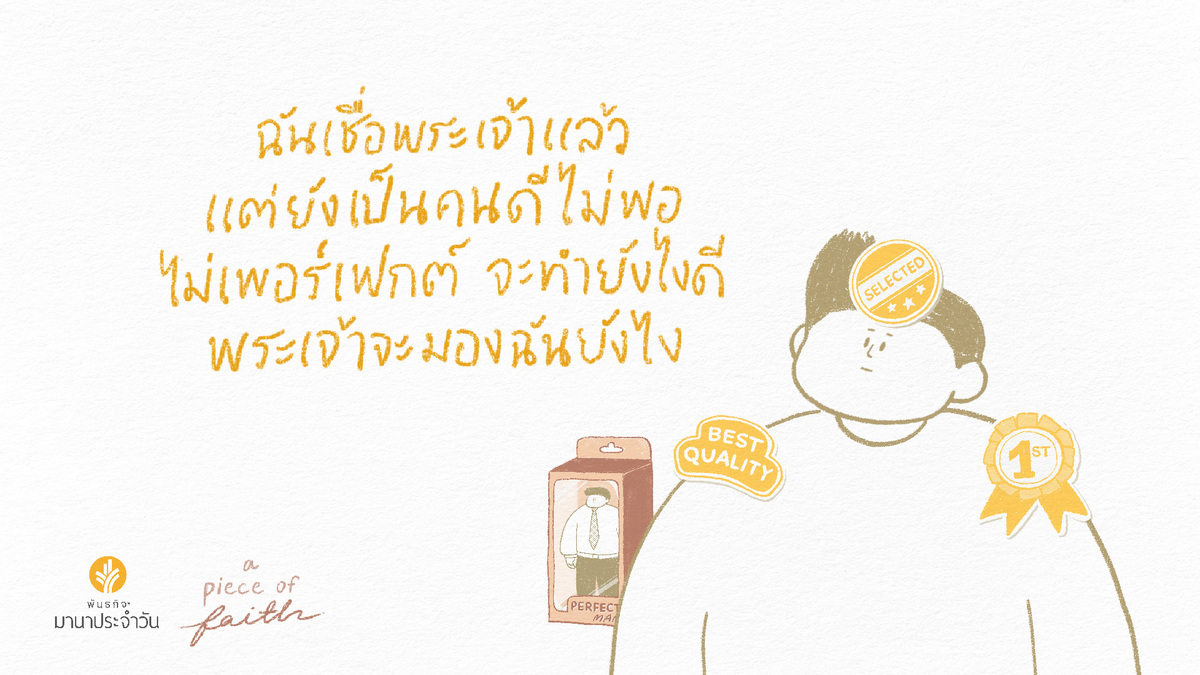 ฉันเชื่อพระเจ้าแล้ว
แต่ยังเป็นคนดีไม่พอ
ไม่เพอร์เฟกต์ จะทำยังไงดี
พระเจ้าจะมองฉันยังไง
SELECTED
BEST
QUALITY
1ST
PERFECT
MAN
พันธกิจ
มานาประจำวัน
a
piece of
faith